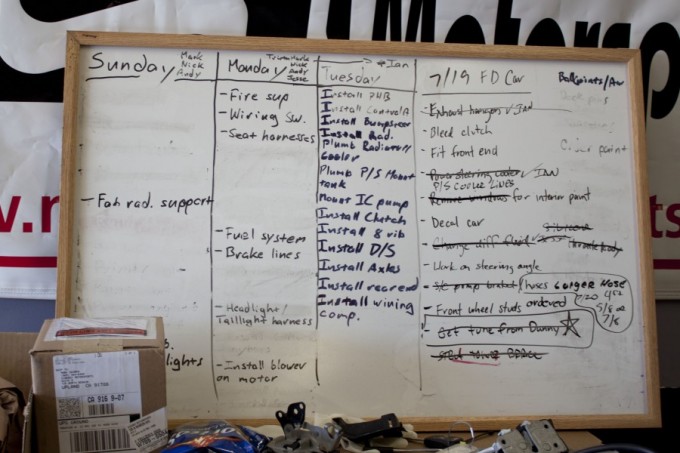 Sunday Mark
Nick
Andy
- Fab rad. support
lights
Monday
Nick
Andy
Jesse
- Fire sup
- Wiring Sw.
- Seat harnesses
- Fuel system
- Brake lines
- Headlight/
Taillight harness
- Install blower
on motor
+ Ian
Tuesday
Install
Install
Install Bumpsteer
Install Rad.
Plumb Radiator/
Cooler
Plumb P/S Mount
tank
Mount IC pump
Install Clutch
Install 8 rib
Install D/S
Install Axles
Install rear end
Install wiring
comp.
7/19 FD Car
- Exhaust hangers ✓ IAN
- Bleed clutch
- Fit front end
- Power steering cooler ✓ IAN
P/S COOLER LINES
- Remove windows for interior paint
- Decal car
- Change diff fluid
throttle body
- Work on steering angle
- I/C pump bracket
FUSES LONGER HOSE
7/20
5/8 or
7/8
- Front wheel studs ordered
- Get tune from Danny
Ball joints/
Color paint
Motorsp
UPLAND CA 91786
CA 915 9-07